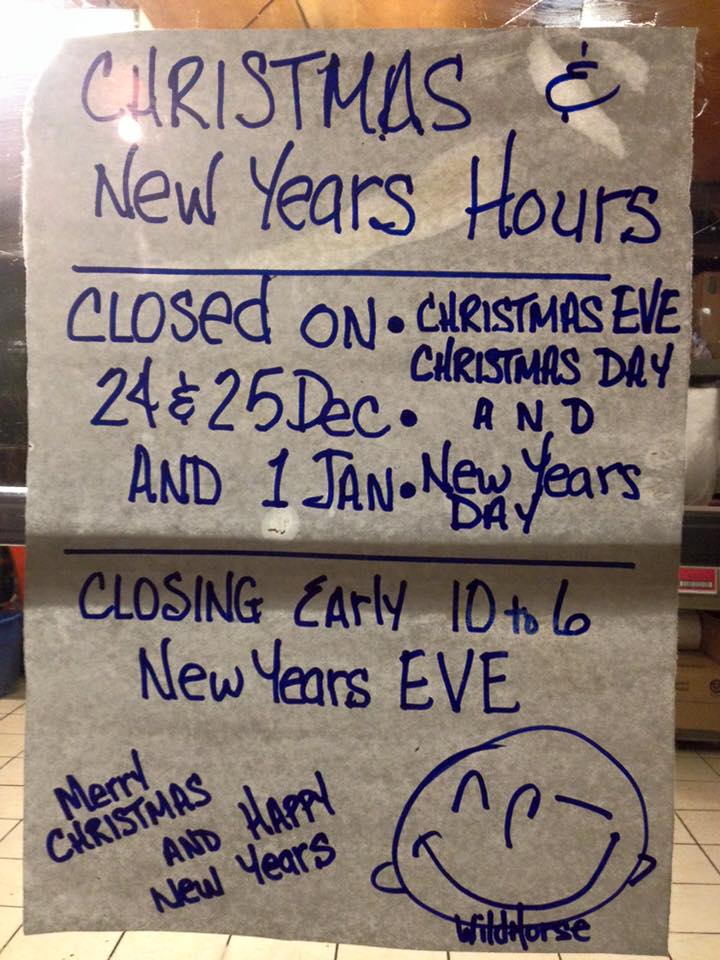 CHRISTMAS &
New Years Hours
CLOSed ON • CHRISTMAS EVE
CHRISTMAS DAY
24 & 25 Dec. • AND
AND 1 JAN. • New Years
DAY
CLOSING EArly 10 to 6
New Years EVE
Merry
CHRISTMAS
AND HAPPY
New Years
WildHorse